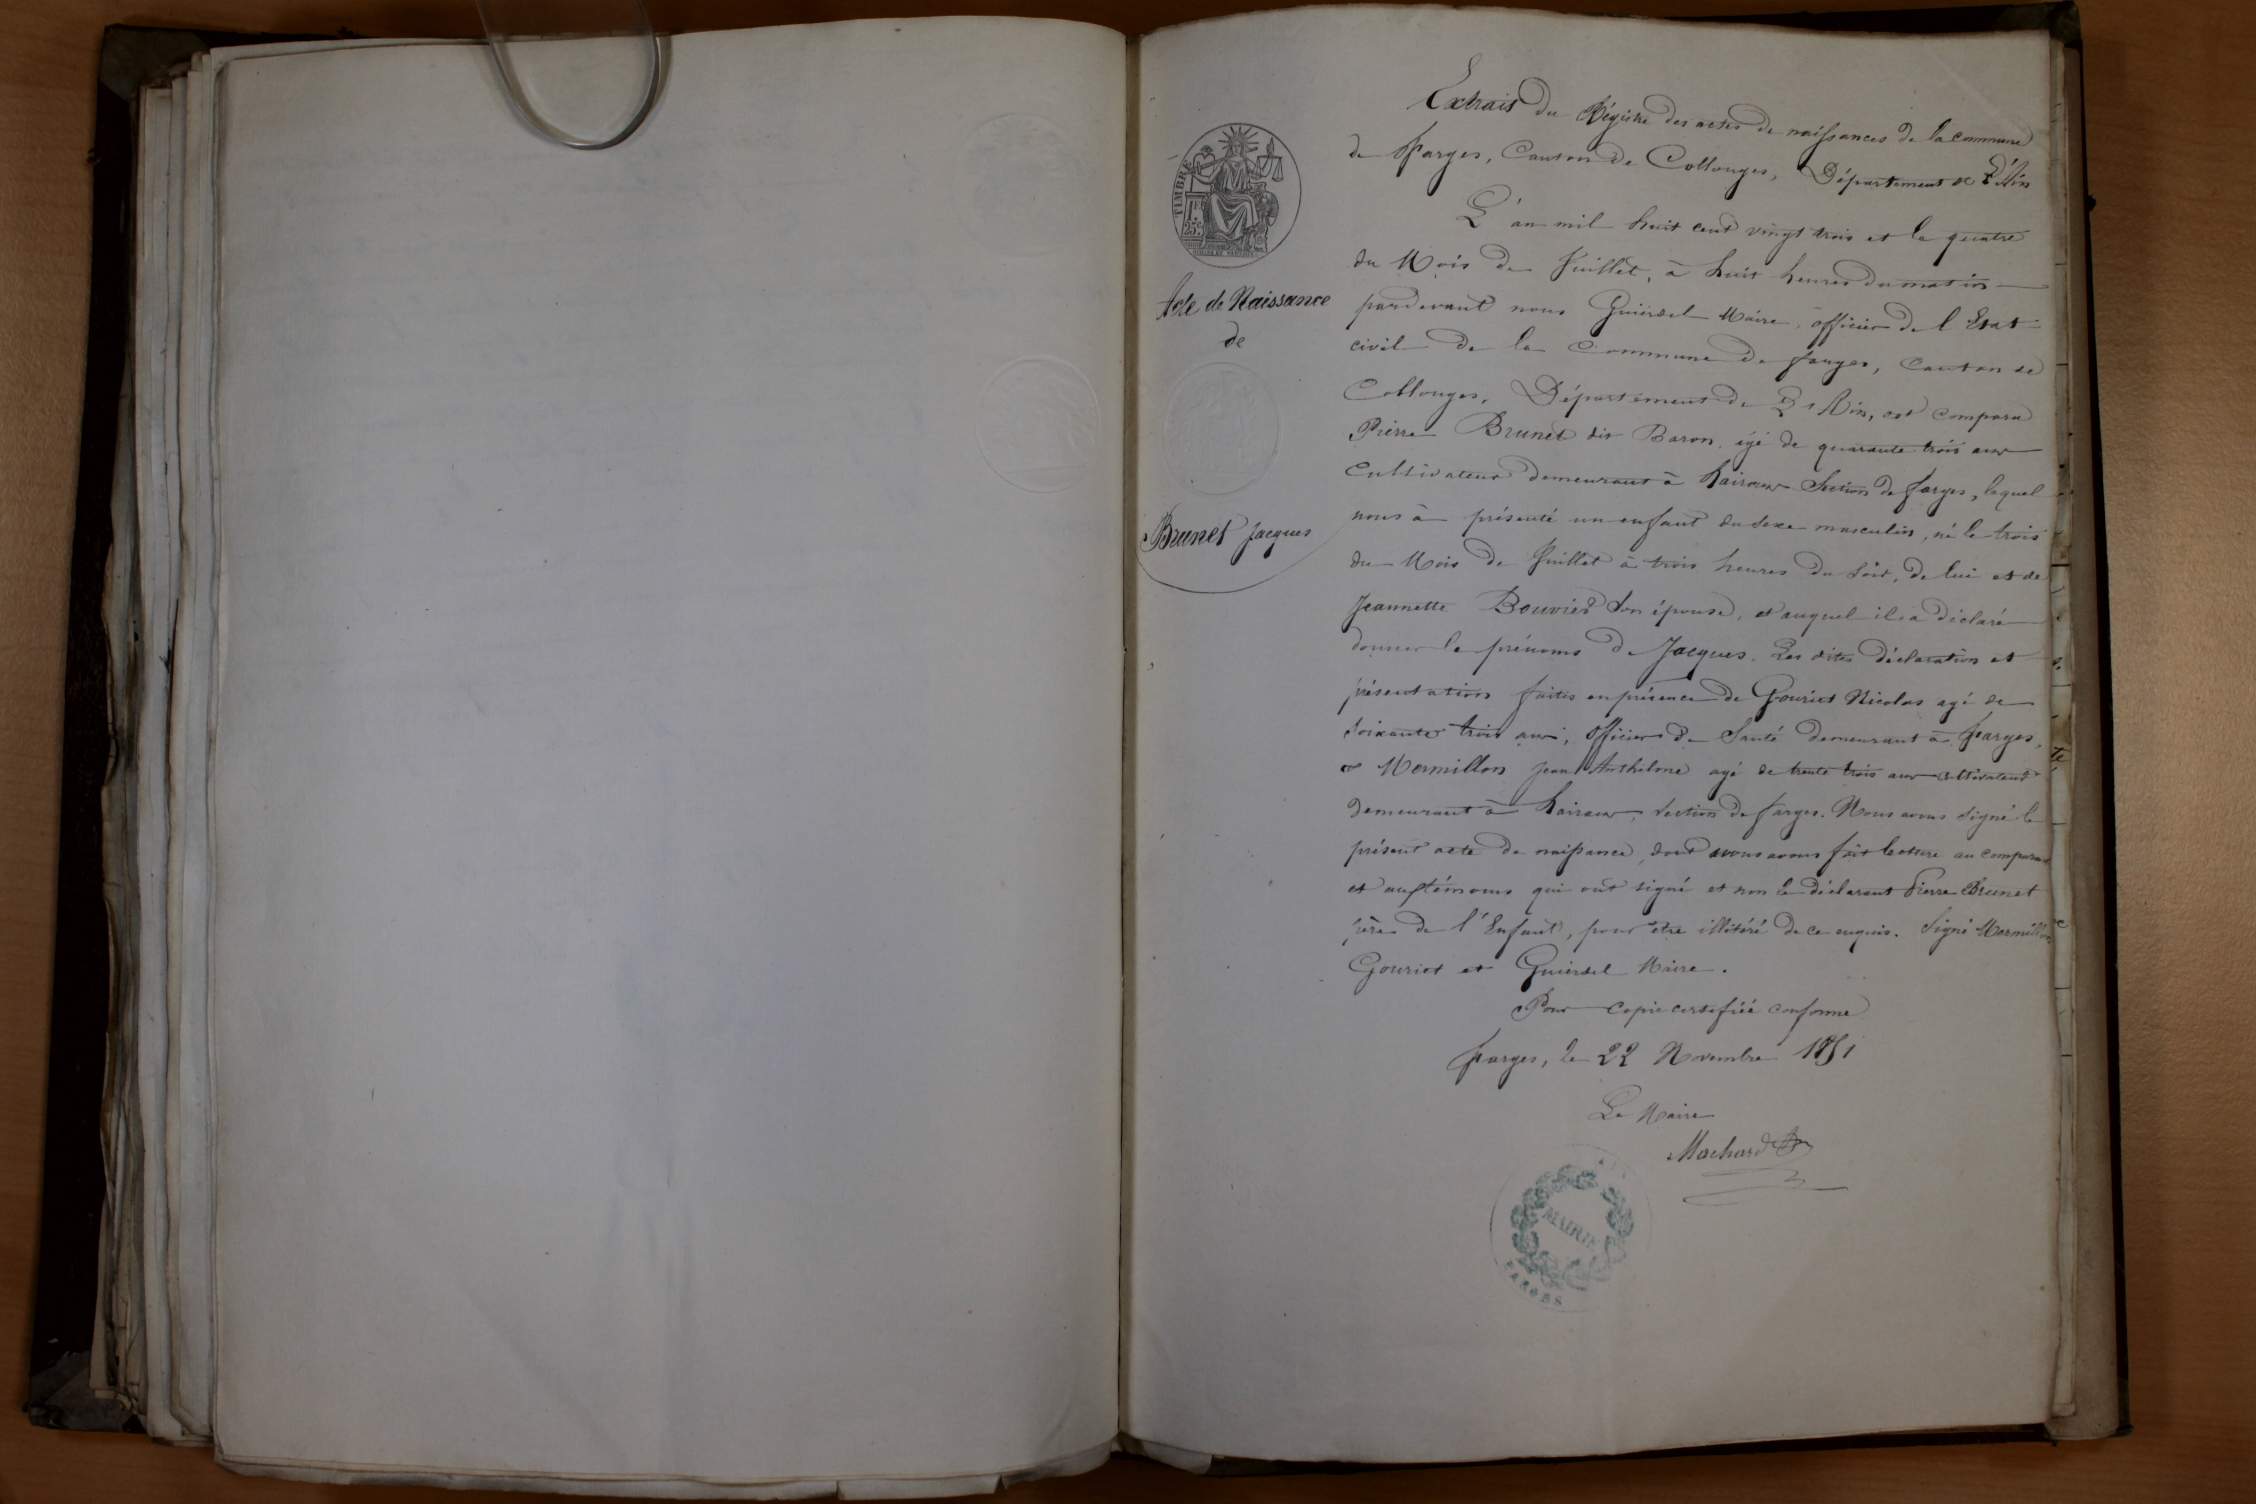 TIMBRE
1F
25c
Acte de Naissance
de
Brunet Jacques
Extrais du Régistre des actes de naissances de la commune
de Farges, Canton de Collonges, Département de l'Ain
L'an mil huit cent vingt trois et le quatre
du Mois de Juillet, à huit heures du matin
pardevant nous Maire, officier de l'Etat
civil de la Commune de farges, Canton de
Collonges, Département de L'Ain, est comparu
Pierre Brunet dit Baron, âgé de quarante trois ans
Cultivateur demeurant à Section de farges, lequel
nous à présenté un enfant du sexe masculin, né le trois
du Mois de Juillet à trois heures du soir, de lui et de
Jeannette Bouvier son épouse, et auquel il a déclaré
donner le prénoms de Jacques. Les dites déclaration et
présentation faites en présence de Gouriot Nicolas agé de
soixante trois ans, Officier de Santé demeurant à Farges,
et Mermillon Jean Anthelme agé de trente trois ans cultivateur
demeurant à section de farges. Nous avons signé le
présent acte de naissance, dont nous avons fait lecture au comparant
et aux témoins qui ont signé et non le déclarant Pierre Brunet
père de l'Enfant, pour être illitéré de ce enquis. Signé Mermillon
Gouriot et Maire.
Pour copie certifiée conforme
Farges, le 22 Novembre
Le Maire
Machard
MAIRIE
FARGES